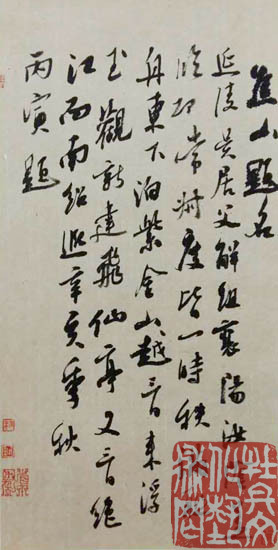 焦山題名
延陵吴居父解組襄陽洪
臨邛常時度皆一時秩
舟東下泊紫金山越三日来浮
玉觀新建飛仙亭又三日絶
江而南紹熙辛亥季秋
丙寅題